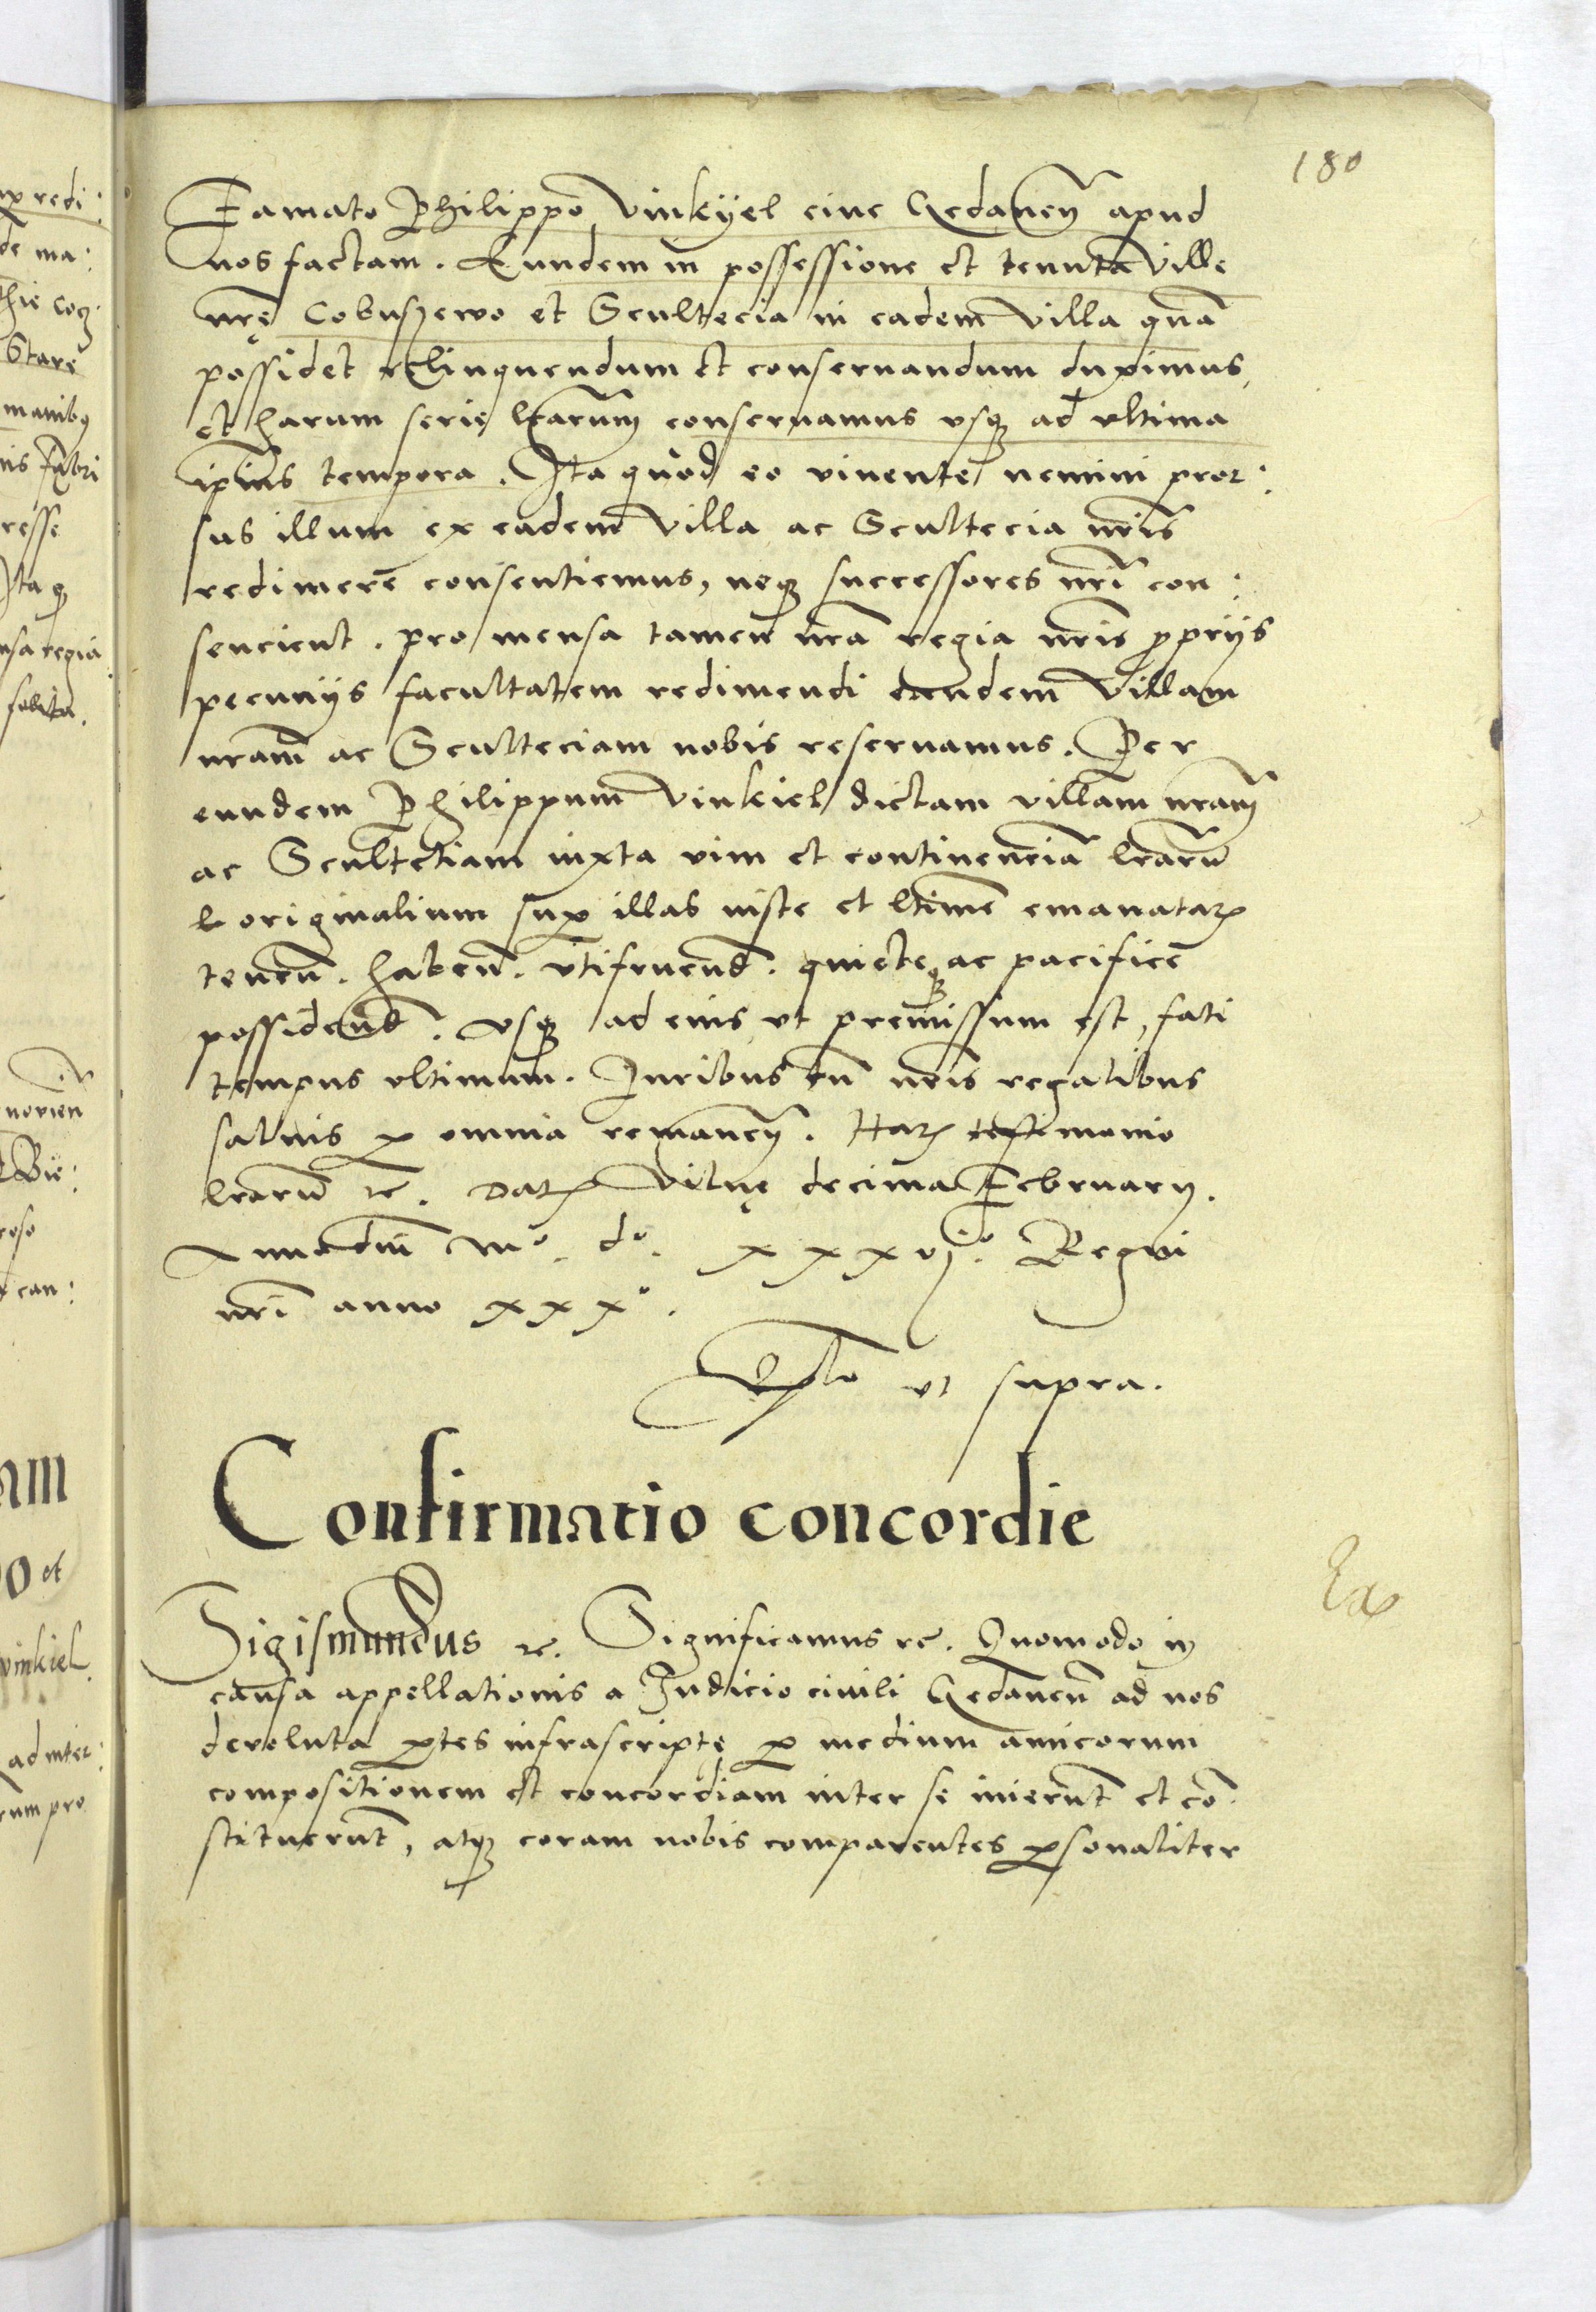 180
Famato Philippo Vinkÿel ciue Gedaneñ apud
nos factam. Eundem in possessione et tenuta Ville
nrę Cobuszewo et Scultecia in eadem Villa quã
possidet relinquendum et conseruandum duximus,
et harum serie lrarum conseruamus vsq ad vltima
ipius tempora. Ita quod eo viuente nemini pror:
sus illum ex eadem Villa ac Scultecia nris
redimere consentiemus, neq successores nri con:
sencient. pro mensa tamen nra regia nris proprijs
pecunijs facultatem redimendi eandem Villam
nram ac Sculteciam nobis reseruamus. Per
eundem Philippum Vinkiel dictam villam nram
ac Scultetiam iuxta vim et continenciã lrarũ
originalium sup illas iuste et ltime emanatarꝝ
teneñ. habeñ. vtifrueñd. quieteq ac pacifice
possideñd. vsq ad eius vt premissum est, fati
tempus vltimum. Juribus tñ nris regalibus
saluis p omnia remaneñ. Harꝝ testimonio
lrarũ ꝛc. Datꝝ Vilnę decima Februarij.
Anno dni mº dº xxxvjº. Regni
nri anno xxxº.
vt supra.
Confirmatio concordie
Ex
Sigismundus ꝛc. Significamus ꝛc. Quomodo in
causa appellationis a Judicio ciuili Gedaneñ ad nos
deuoluta ptes infrascriptę p medium amicorum
compositionem et concordiam inter se inierunt et cõ
stituerunt, atq coram nobis comparentes psonaliter